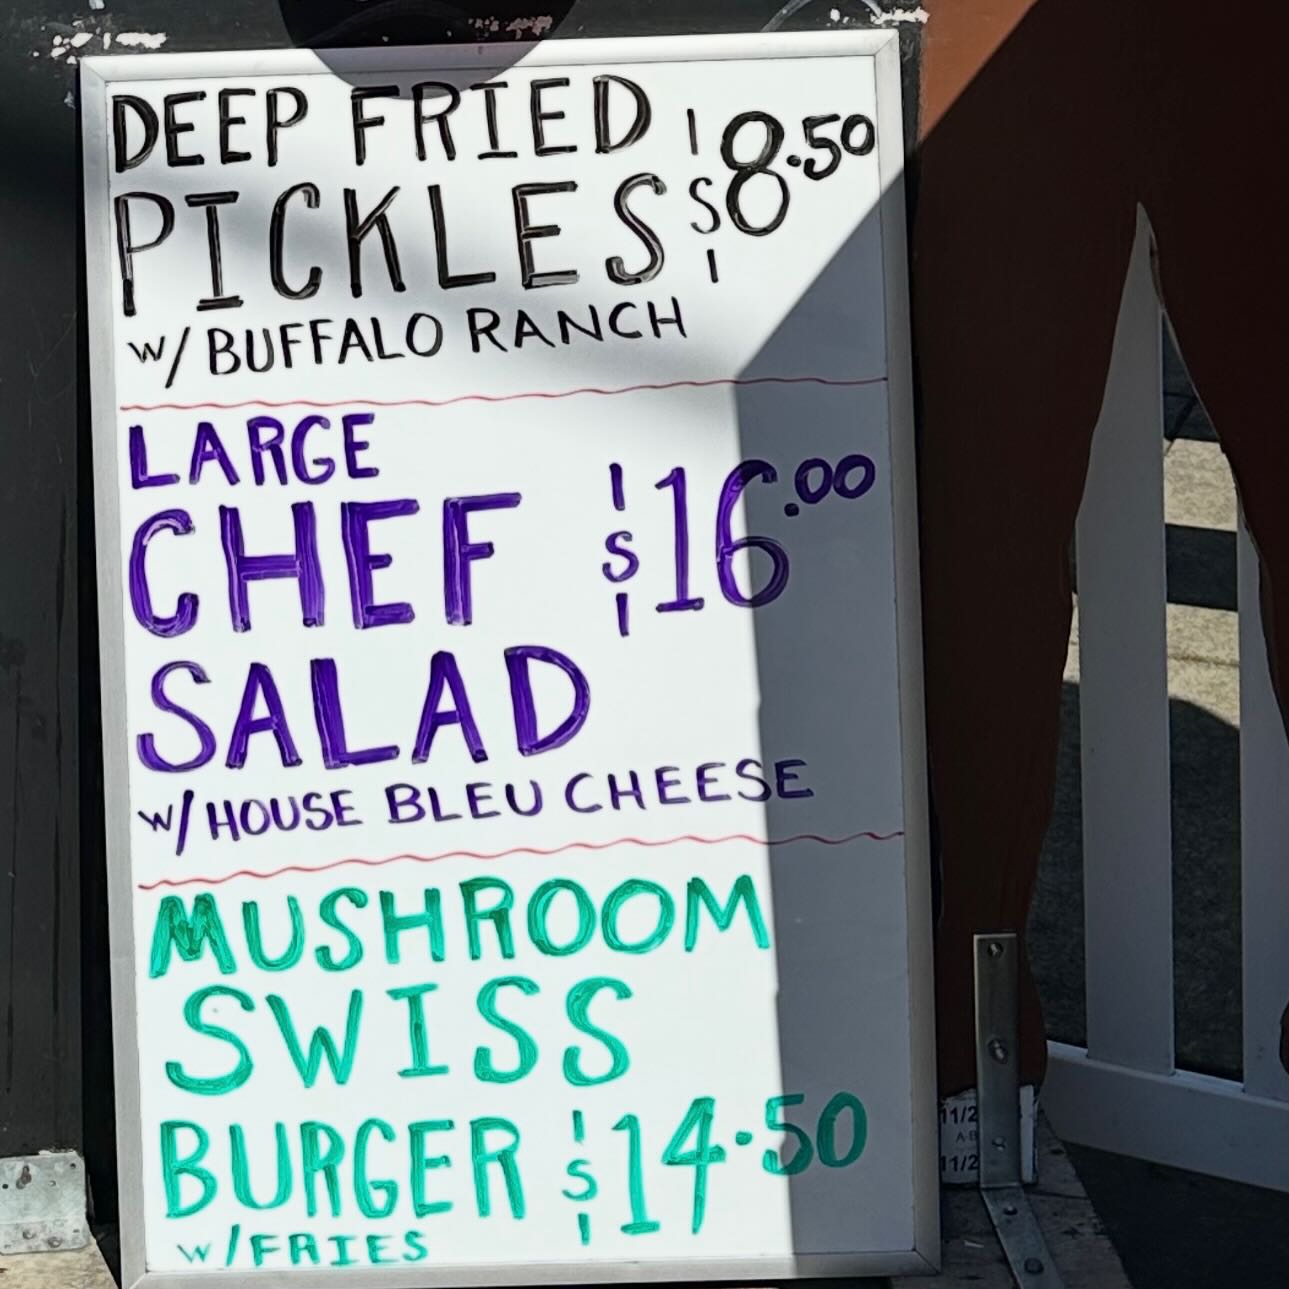 DEEP FRIED
PICKLES $8.50
w/ BUFFALO RANCH
LARGE
CHEF $16.00
SALAD
w/ HOUSE BLEU CHEESE
MUSHROOM
SWISS
BURGER $14.50
w/ FRIES
11/2
A-B
11/2